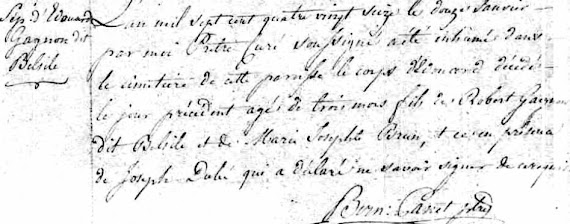 Sép. d'Edouard
Gagnon dit
Belisle
L'an mil sept cent quatre vingt seize le douze Janvier
par moi Prêtre Curé soussigné a été inhumé dans
le cimetière de cette paroisse le corps d'Edouard décédé
le jour précédent agé de trois mois fils de Robert Gagnon
dit Belisle et de Marie Josephte Brun, et ce en présence
de Joseph Dubé qui a déclaré ne savoir signer de ce requis
Bern: Panet ptre